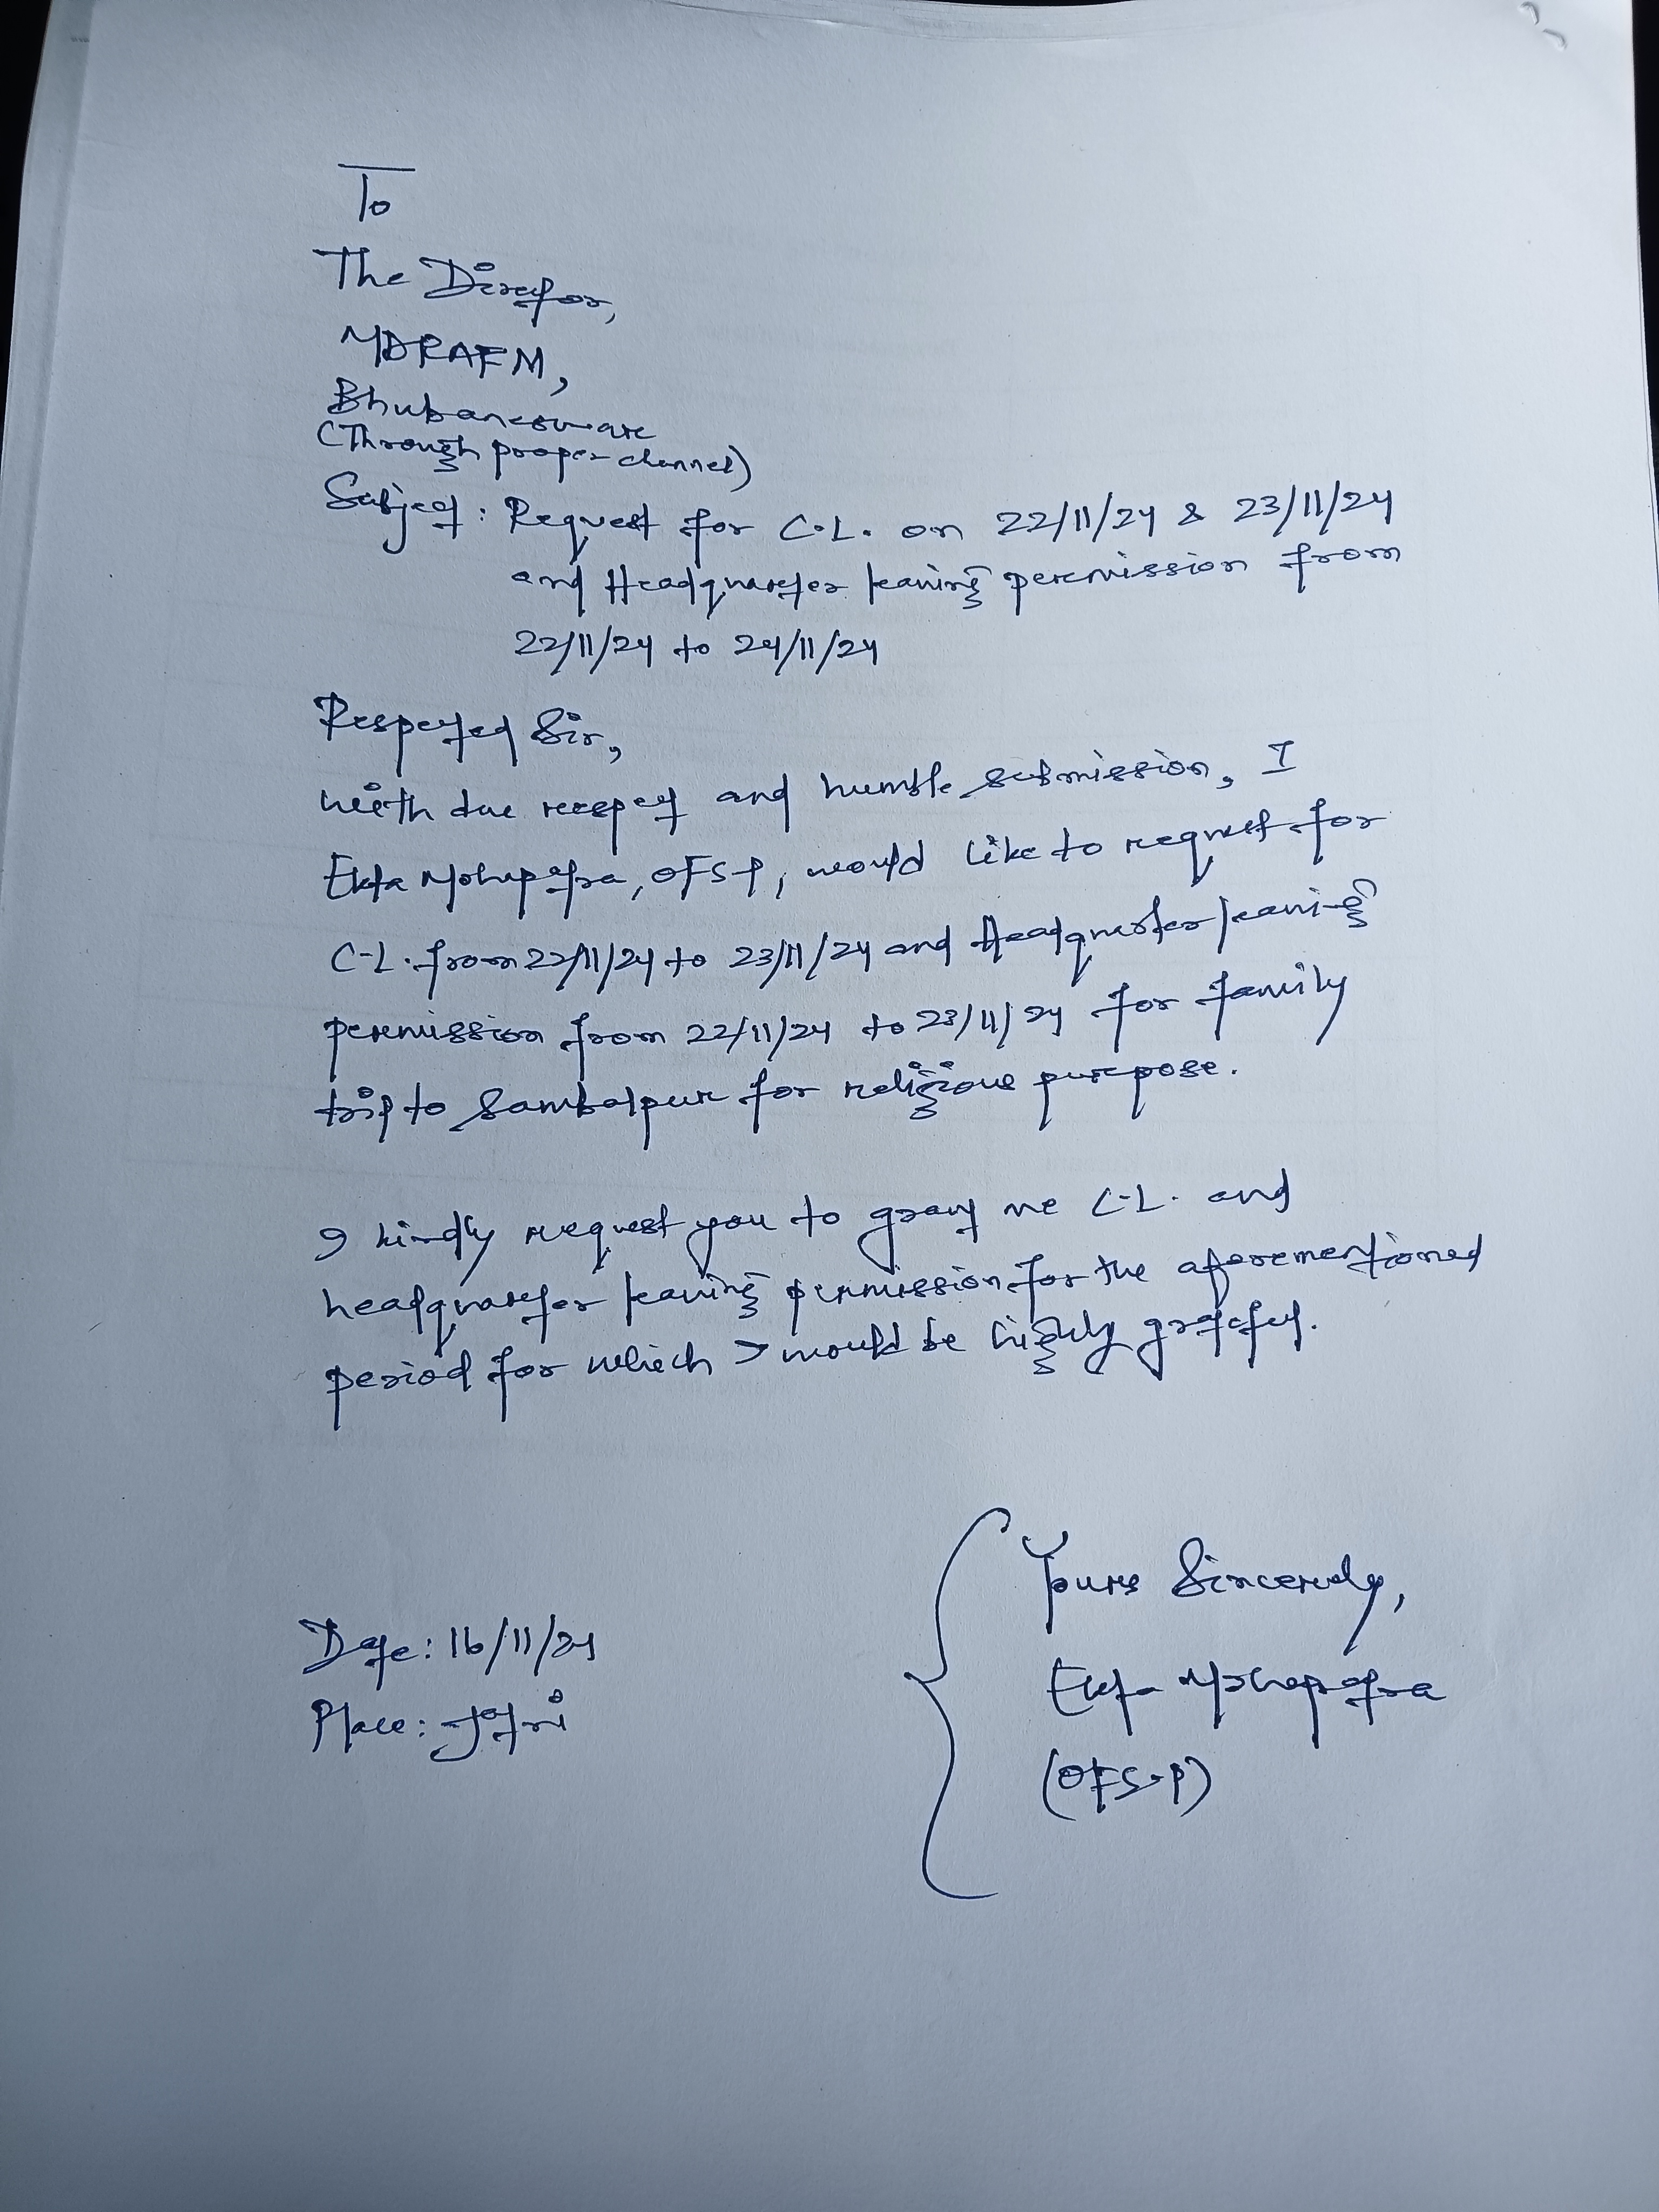 To
The Director,
MDRAFM,
Bhubaneswar
(Through proper channel)
Subject: Request for C.L. on 22/11/24 & 23/11/24
and Headquarter leaving permission from
22/11/24 to 24/11/24
Respected Sir,
with due respect and humble submission, I
Ekta Mohapatra, OFS-P, would like to request for
C.L. from 22/11/24 to 23/11/24 and Headquarter leaving
permission from 22/11/24 to 23/11/24 for family
trip to Sambalpur for religious purpose.
I kindly request you to grant me C.L. and
headquarter leaving permission for the aforementioned
period for which I would be highly grateful.
Yours Sincerely,
Ekta Mohapatra
(OFS-P)
Date: 16/11/24
Place: Jatni